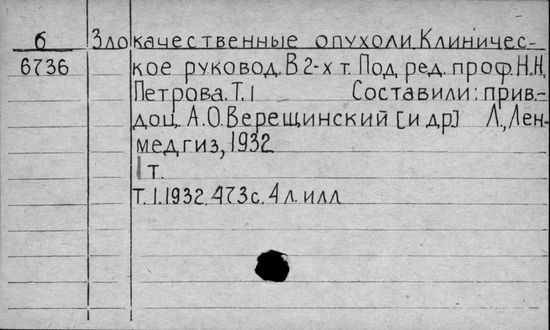 б Злокачественные опухоли. Клиничес-
6736 кое руковод. В 2-х т. Под ред. проф. Н.Н.
Петрова. Т. 1 Составили: прив.-
доц. А.О. Верещинский [и др] Л., Лен-
медгиз, 1932
1 т.
Т. 1. 1932. 473 с. 4 л. илл